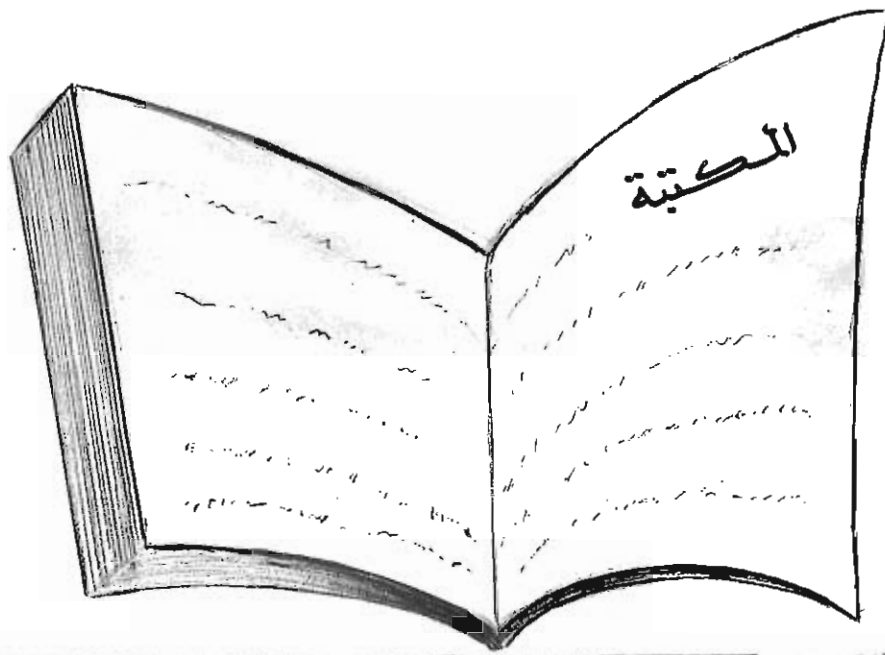 المكتبة